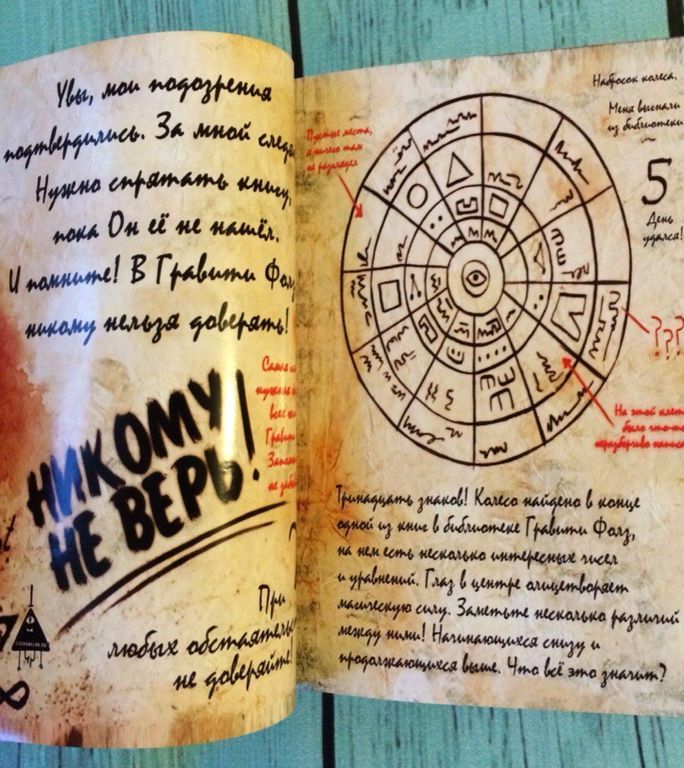 Увы, мои подозрения
подтвердились. За мной
Нужно спрятать книгу,
пока Он её не нашёл.
И помните! В Гравити
никому нельзя доверять!
НИКОМУ
НЕ ВЕРЬ!
При
любых
не доверяйте!
Набросок колеса.
Меня выгнали
из библиотеки
5
День
удался!
Пустые места,
я ничего там
не разглядел
???
На этой
было что-то
неразборчиво
Тринадцать знаков! Колесо найдено в конце
одной из книг в библиотеке Гравити Фолз,
на нем есть несколько интересных чисел
и уравнений. Глаз в центре олицетворяет
магическую силу. Заметьте несколько различий
между ними! Начинающихся снизу и
продолжающихся выше. Что всё это значит?